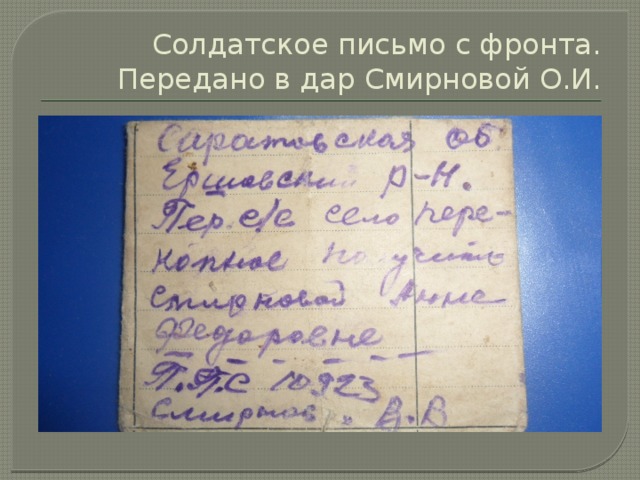 Солдатское письмо с фронта.
Передано в дар Смирновой О.И.
Саратовская об
Ершовский р-н.
Пер. с/с село Пере-
копное получить
Смирновой Анне
Федоровне
П.П.С 10923
Смирнов В.В